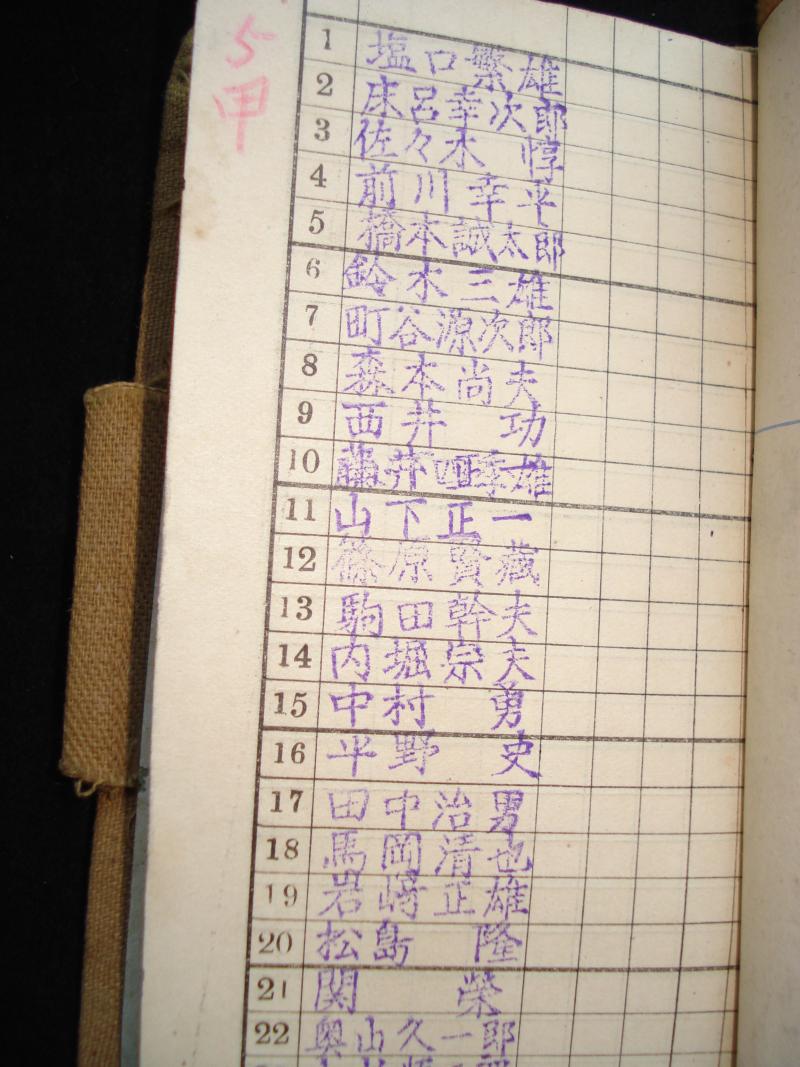 5
甲
1 塩口繁雄
2 床呂幸次郎
3 佐々木 惇
4 前川幸平
5 橋本誠太郎
6 鈴木三雄
7 町谷源次郎
8 森本尚夫
9 西井 功
10 藤井四季雄
11 山下正一
12 篠原賢蔵
13 駒田幹夫
14 内堀宗夫
15 中村 勇
16 平野 史
17 田中治男
18 馬岡清也
19 岩崎正雄
20 松島 隆
21 関 榮
22 奥山久一郎